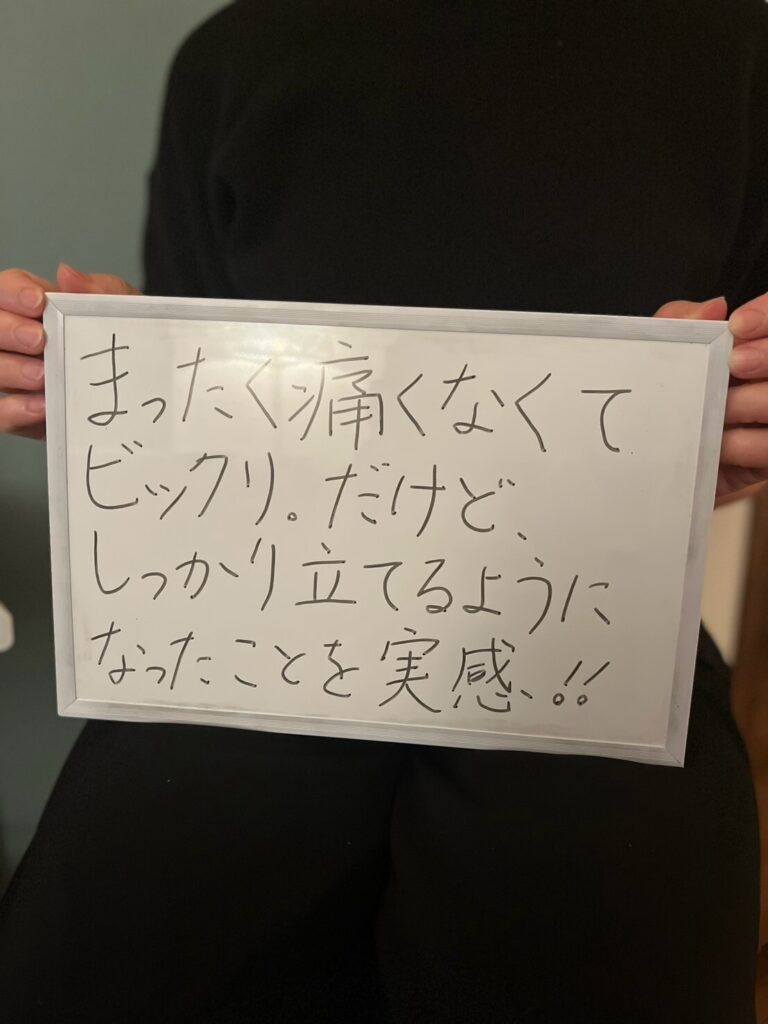 まったく痛くなくて
ビックリ。だけど、
しっかり立てるように
なったことを実感!!